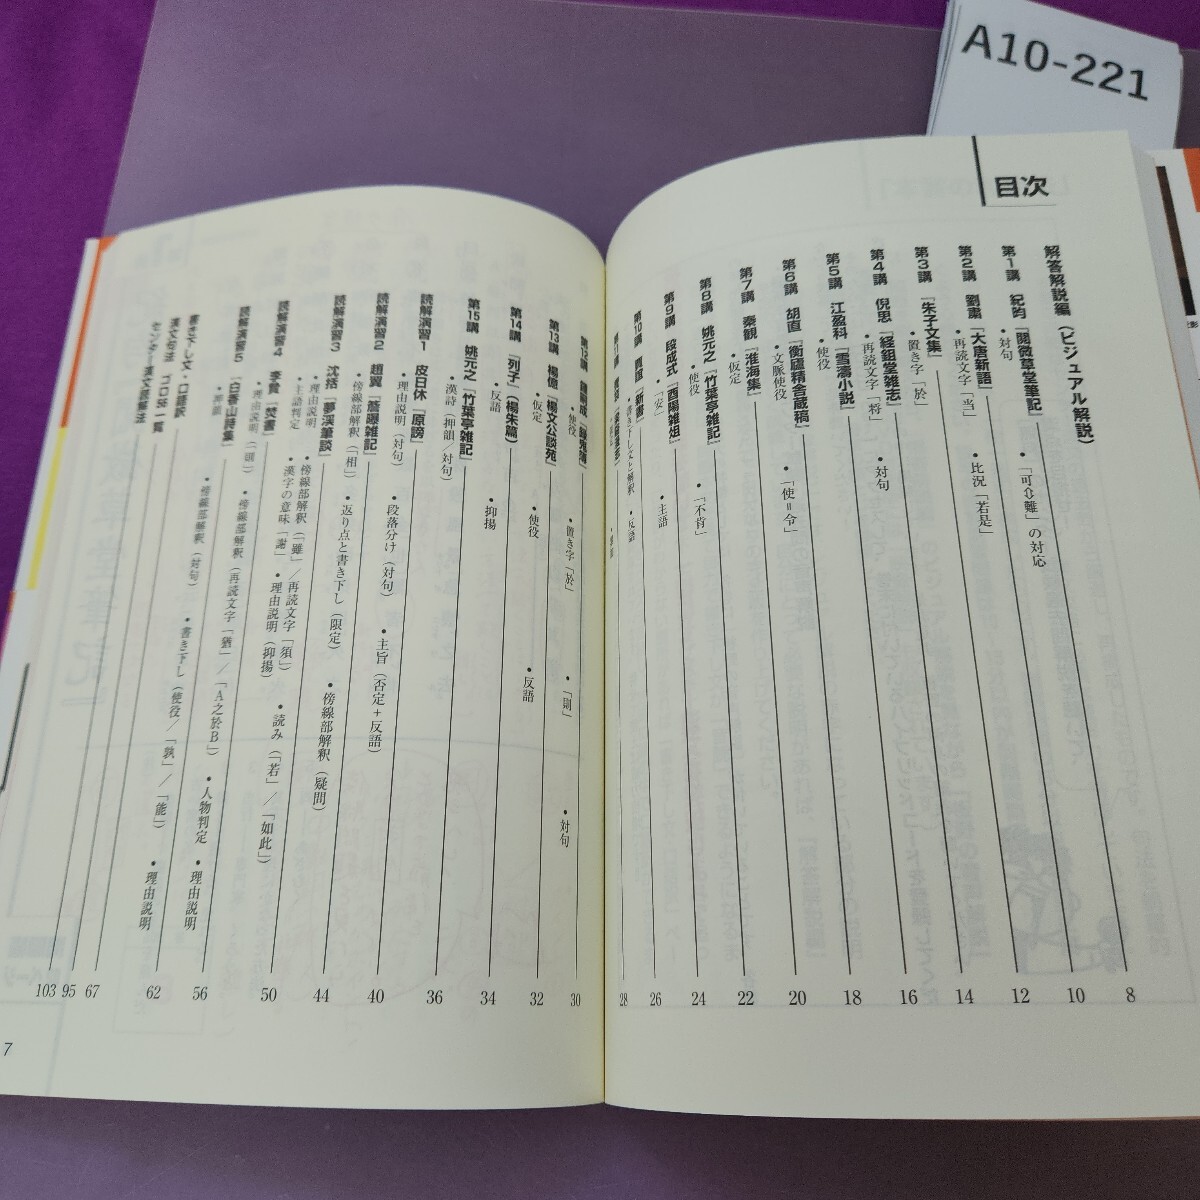 A10-221
目次
解答解説編（ビジュアル解説） 8
第1講 紀昀『閲微草堂筆記』 10
・対句 ・「可⇔難」の対応
第2講 劉粛『大唐新語』 12
・再読文字「当」 ・比況「若是」
第3講 『朱子文集』 14
・置き字「於」
第4講 倪思『経鉏堂雑志』 16
・再読文字「将」 ・対句
第5講 江盈科『雪濤小説』 18
・使役
第6講 胡直『衡廬精舎蔵稿』 20
・文脈使役 ・「使＝令」
第7講 秦観『淮海集』 22
・仮定
第8講 姚元之『竹葉亭雑記』 24
・使役 ・「不肯」
第9講 段成式『酉陽雑俎』 26
・「安」 ・主語
第10講 賈誼『新書』 28
・書き下し文と解釈 ・反語
第11講
第12講 鍾嗣成『録鬼簿』 30
・使役 ・置き字「於」 ・「則」 ・対句
第13講 楊億『楊文公談苑』 32
・仮定 ・使役 ・反語
第14講 『列子』（楊朱篇） 34
・反語 ・抑揚
第15講 姚元之『竹葉亭雑記』 36
・漢詩（押韻／対句）
読解演習1 皮日休『原謗』 40
・理由説明（対句） ・段落分け（対句） ・主旨（否定＋反語）
読解演習2 趙翼『簷曝雑記』 44
・傍線部解釈（「相」） ・返り点と書き下し（限定） ・傍線部解釈（疑問）
・理由説明
読解演習3 沈括『夢渓筆談』 50
・傍線部解釈（「雖」／再読文字「須」） ・読み（「若」／「如此」）
・主語判定 ・漢字の意味「謝」 ・理由説明（抑揚）
読解演習4 李贄『焚書』 56
・理由説明（「則」） ・傍線部解釈（再読文字「猶」／「A之於B」） ・人物判定 ・理由説明
読解演習5 『白香山詩集』 62
・押韻 ・傍線部解釈（対句） ・書き下し（使役／「孰」／「能」） ・理由説明
書き下し文・口語訳 67
漢文句法 ゴロ55一覧 95
センター漢文読解法 103
7